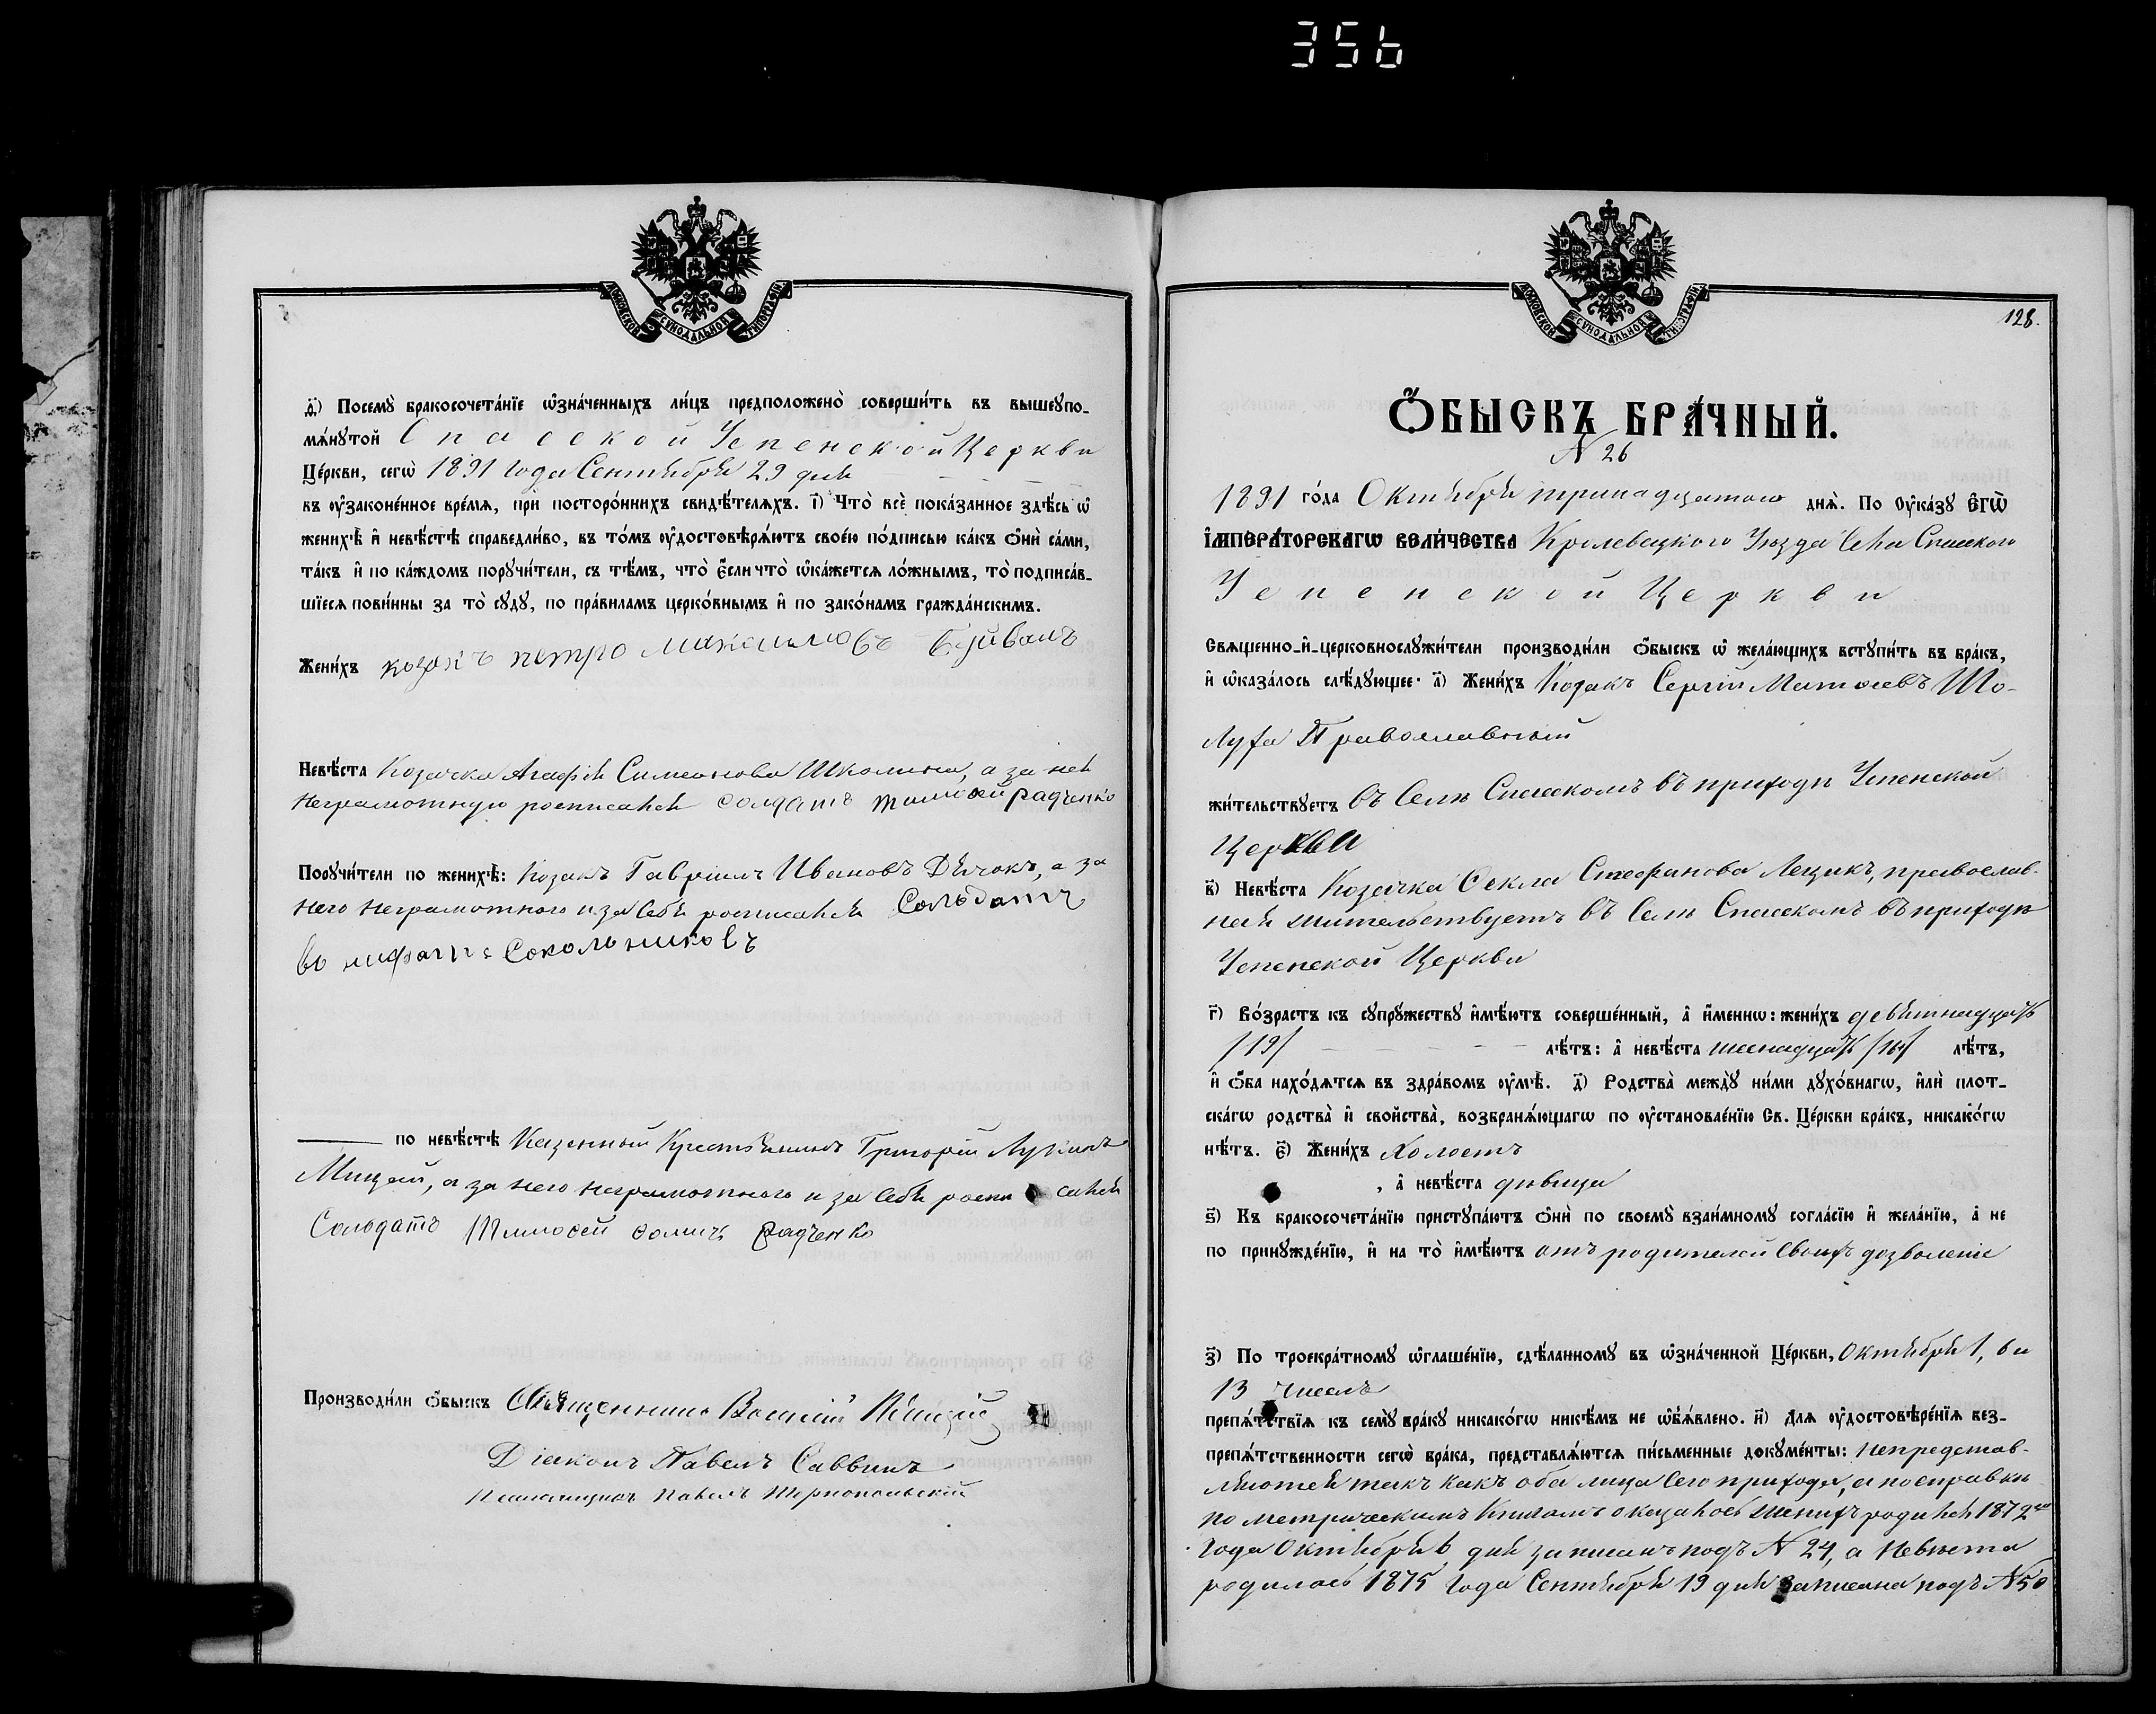 356
МОСКОВСКОЙ СУНОДАЛЬНОЙ ТИПОГРАФІИ
д҃і) Посемꙋ̀ бракосочета́нїе ѡ҆зна́ченныхъ ли́цъ предположено̀ соверши́ть въ вышеупо-
мѧ́нꙋтой Спасской Успенской Церкви
Це́ркви, сегѡ̀ 1891 года Сентября 29 дня
въ ᲂу҆законе́нное вре́мѧ, при посторо́ннихъ свидѣ́телѧхъ. і҃) Что̀ всѐ пока́занное здѣ́сь ѡ҆
женихѣ̀ и҆ невѣ́стѣ справедли́во, въ то́мъ ᲂу҆достовѣрѧ́ютъ свое́ю по́дписью ка́къ ѻ҆нѝ са́ми,
та́къ и҆ по ка́ждомъ порꙋчи́тели, съ тѣ́мъ, что̀ є҆́сли что̀ ѡ҆ка́жетсѧ ло́жнымъ, то̀ подписа́в-
шїесѧ пови́нны за то̀ сꙋдꙋ̀, по пра́виламъ церко́внымъ и҆ по зако́намъ гражда́нскимъ.
Жени́хъ козакъ петро максимовъ Буйванъ
Невѣ́ста Козачка Агафія Симеонова Школина, а за неё
неграмотную росписался солдатъ тимофей радченко
Порꙋчи́тели по женихѣ̀: Козакъ Гавріилъ Ивановъ Дячокъ, а за
него неграмотного и за себя росписался Сольдатъ
Сокольниковъ
по невѣ́стѣ Казенный Крестьянинъ Григорій Лукинъ
Мицай, а за него неграмотного и за себя росписался
Сольдатъ Тимофей фомичъ Радченко
Производи́ли ѻ҆́быскъ Священникъ Василій
Діаконъ Павелъ Саввинъ
Псаломщикъ Павелъ Тернопольскій
МОСКОВСКОЙ СУНОДАЛЬНОЙ ТИПОГРАФІИ
128.
Ѻ҆́БЫСКЪ БРА́ЧНЫЙ.
№ 26
1891 го́да Октября тринадцатого днѧ̀. По Оу҆ка́зꙋ Є҆гѡ̀
І҆мпера́торскагѡ Вели́чества Кролевецкого Уѣзда Села Спасского
Успенской Церкви
Свѧще́нно-и҆-церковнослꙋжи́тели производи́ли ѻ҆́быскъ ѡ҆ жела́ющихъ встꙋпи́ть въ бра́къ,
и҆ ѡ҆каза́лось слѣ́дꙋющее: а҃) Жени́хъ Козакъ Сергій Матѳеевъ Шо-
луха Православный
жи́тельствꙋетъ въ Селѣ Спасскомъ въ приходѣ Успенской
Церкви
в҃) Невѣ́ста Козачка Ѳекла Стефанова Лещикъ, православ-
ная жительствуетъ въ Селѣ Спасскомъ въ приходѣ
Успенской Церкви
г҃) Во́зрастъ къ сꙋпрꙋ́жествꙋ и҆мѣ́ютъ соверше́нный, а҆ и҆́меннѡ: жени́хъ девятнадцать
/19/ лѣ́тъ: а҆ невѣ́ста шеснадцать /16/ лѣ́тъ,
и҆ ѻ҆́ба нахо́дѧтсѧ въ здра́вомъ ᲂу҆мѣ̀. д҃) Родства̀ междꙋ̀ ни́ми дꙋхо́внагѡ, и҆лѝ плот-
ска́гѡ родства̀ и҆ свойства̀, возбранѧ́ющагѡ по ᲂу҆становле́нїю Св. Це́ркви бра́къ, никако́гѡ
нѣ́тъ. є҃) Жени́хъ Холостъ
, а҆ невѣ́ста дѣвица
ѕ҃) Къ бракосочета́нїю пристꙋпа́ютъ ѻ҆нѝ по своемꙋ̀ взаи́мномꙋ согла́сїю и҆ жела́нїю, а҆ не
по принꙋжде́нїю, и҆ на то̀ и҆мѣ́ютъ отъ родителей своихъ дозволеніе
з҃) По троекра́тномꙋ ѡ҆глаше́нїю, сдѣ́ланномꙋ въ ѡ҆зна́ченной Це́ркви, Октября 1, 6 и
13 числъ
препѧ́тствїѧ къ семꙋ̀ бра́кꙋ никако́гѡ никѣ́мъ не ѡ҆б̾ѧ́влено. и҃) Длѧ ᲂу҆достовѣре́нїѧ без-
препѧ́тственности сегѡ̀ бра́ка, представлѧ́ютсѧ пи́сьменные докꙋме́нты: непредстав-
ляются такъ какъ оба лица Сего прихода, а по справки
по метрическимъ Книгамъ оказалось женихъ родился 1872го
года Октября 6 дня записанъ подъ № 24, а Невѣста
родилась 1875 года Сентября 19 дня записана подъ № 50